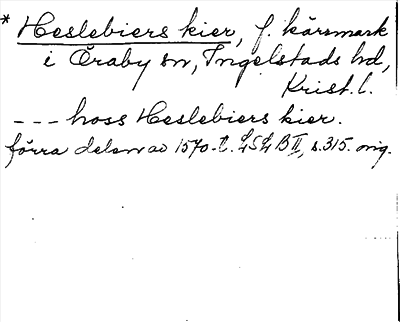 * Heslebiers kier, f. kärsmark
i Öraby sn, Ingelstads hd,
Krist. l.
--- hoss Heslebiers kier.
förra delen av 1570-t. LSLB II, s. 315. orig.